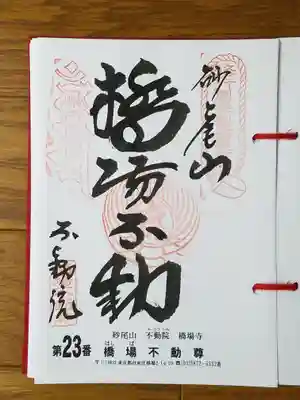 砂尾山
橋場不動
不動院
砂尾山 不動院 橋場寺
はしば
第23番 橋場不動尊